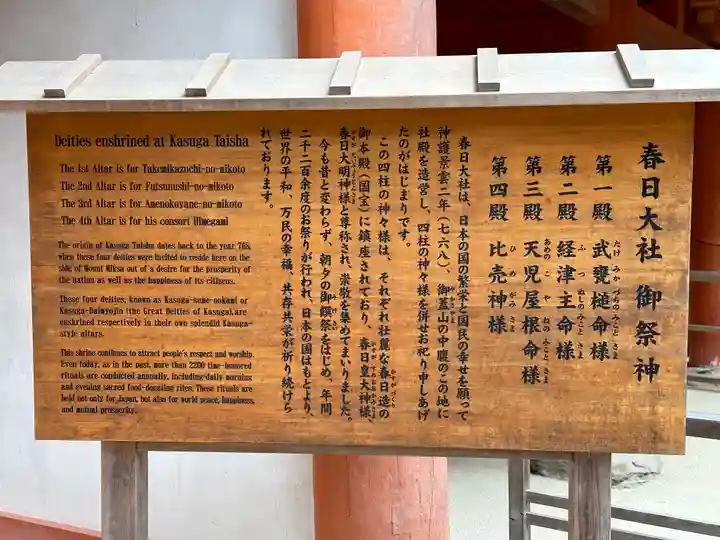 春日大社 御祭神
第一殿 武甕槌命様
たけ みか づちの みこと さま
第二殿 経津主命様
ふ つ ぬしの みこと さま
第三殿 天児屋根命様
あめの こ や ねの みこと さま
第四殿 比売神様
ひ め がみ さま
春日大社は、日本の国の繁栄と国民の幸せを願って
神護景雲二年(七六八)、御蓋山の中腹のこの地に
社殿を造営し、四柱の神々様を併せお祀り申しあげ
たのがはじまりです。
この四柱の神々様は、それぞれ壮麗な春日造の
御本殿(国宝)に鎮座されており、春日皇大神様、
春日大明神様と尊称され、崇敬を集めてまいりました。
今も昔と変わらず、朝夕の御饌祭をはじめ、年間
二千二百余度のお祭りが行われ、日本の国はもとより、
世界の平和、万民の幸福、共存共栄が祈り続けら
れております。
Deities enshrined at Kasuga Taisha
The 1st Altar is for Takemikazuchi-no-mikoto
The 2nd Altar is for Futsunushi-no-mikoto
The 3rd Altar is for Amenokoyane-no-mikoto
The 4th Altar is for his consort Himegami
The origin of Kasuga Taisha dates back to the year 768,
when these four deities were invited to reside here on the
side of Mount Mikasa out of a desire for the prosperity of
the nation as well as the happiness of its citizens.
These four deities, known as Kasuga-sume-ookami or
Kasuga-Daimyojin (the Great Deities of Kasuga), are
enshrined respectively in their own splendid Kasuga-
style altars.
This shrine continues to attract people's respect and worship.
Even today, as in the past, more than 2200 time-honored
rituals are conducted annually, including daily morning
and evening sacred food-donating rites. These rituals are
held not only for Japan, but also for world peace, happiness,
and mutual prosperity.